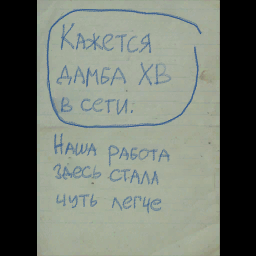 Кажется
дамба ХВ
в сети.
Наша работа
здесь стала
чуть легче